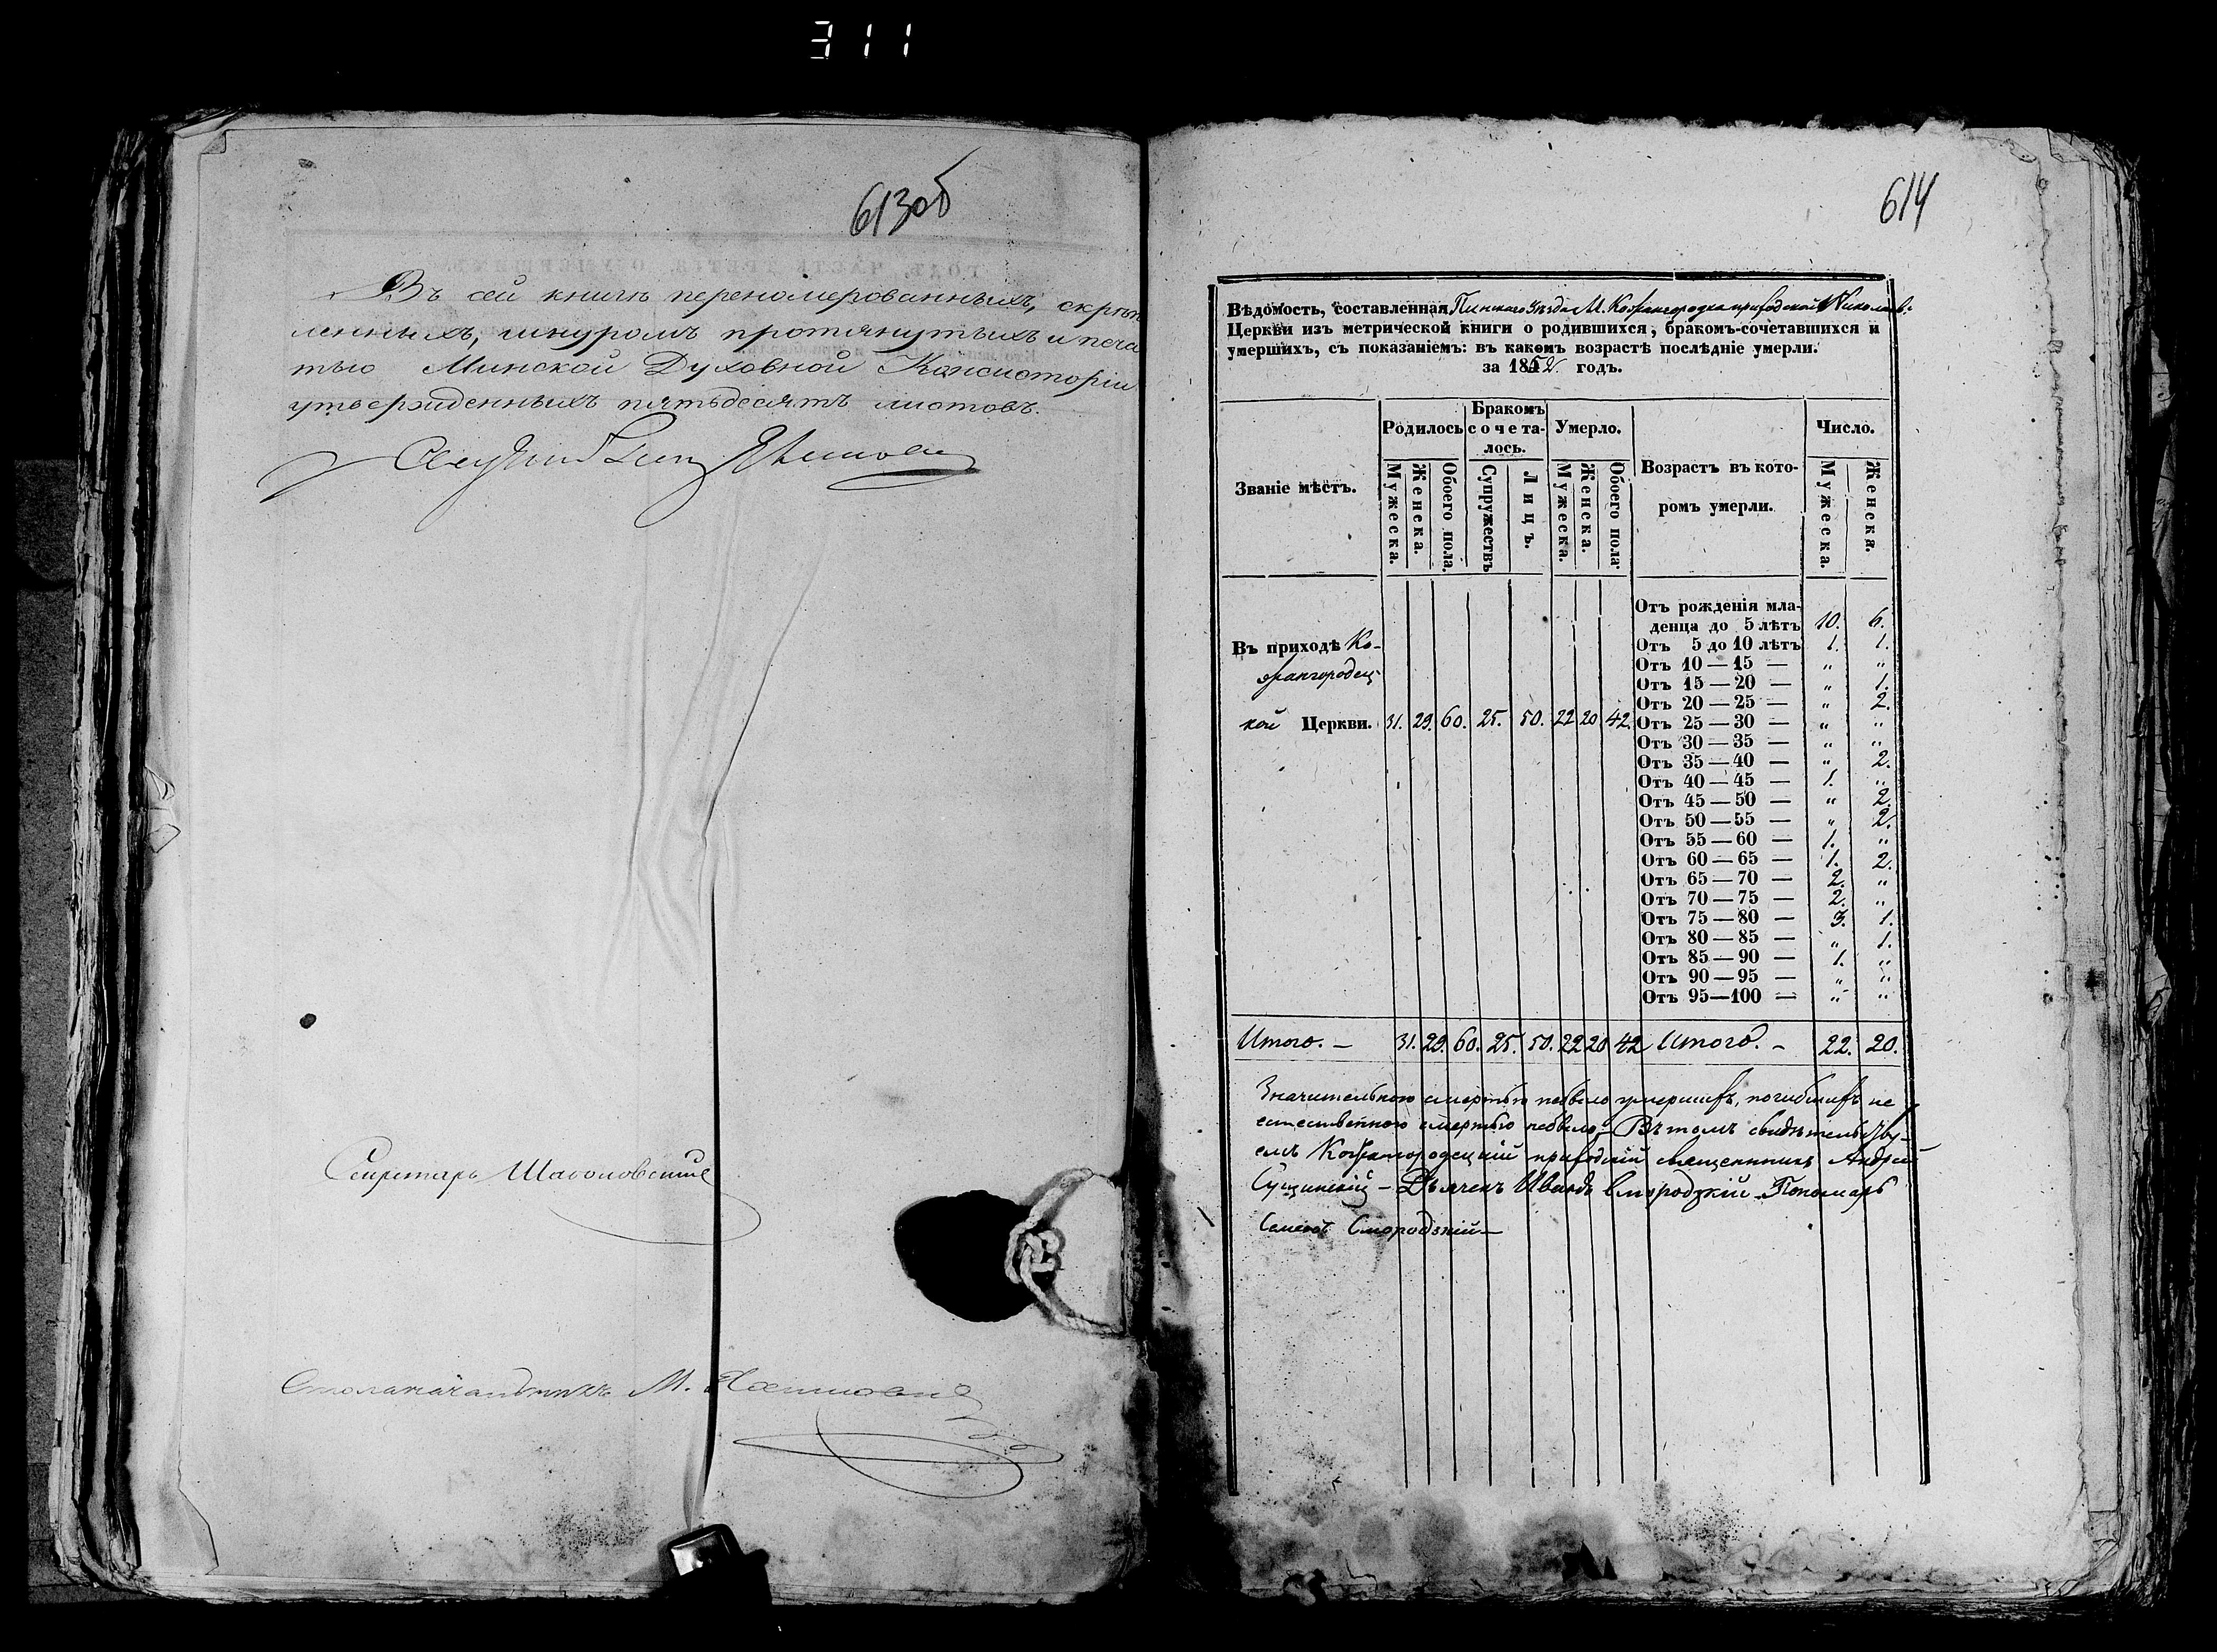 311
613об
Въ сей книгѣ перенумерованныхъ, скрѣп
ленныхъ, шнуромъ протянутыхъ и печа
тью Минской Духовной Консисторіи
утвержденныхъ пятьдесятъ листовъ.
Секретарь
Столоначальникъ М.
614
Вѣдомость, составленная Пинскаго Уѣзда М. Кожангородка приходской Николаев:
Церкви изъ метрической книги о родившихся, бракомъ-сочетавшихся и
умершихъ, съ показаніемъ: въ какомъ возрастѣ послѣдніе умерли.
за 1852 годъ.
Званіе мѣстъ. Родилось Бракомъ сочета-лось. Умерло. Возрастъ въ кото-ромъ умерли. Число.
Мужеска. Женска. Обоего пола. Супружествъ Лицъ. Мужеска. Женска. Обоего пола. Мужеска. Женска.
Отъ рожденія мла-
денца до 5 лѣтъ 10. 6.
Въ приходѣ Ко- Отъ 5 до 10 лѣтъ 1. 1.
жангородец Отъ 10 — 15 — „ „
Отъ 15 — 20 — „ 1.
Отъ 20 — 25 — „ 2.
кой Церкви. 31. 29. 60. 25. 50. 22 20 42. Отъ 25 — 30 — „ „
Отъ 30 — 35 — „ „
Отъ 35 — 40 — „ 2.
Отъ 40 — 45 — 1. „
Отъ 45 — 50 — „ 2.
Отъ 50 — 55 — „ 2.
Отъ 55 — 60 — 1. „
Отъ 60 — 65 — 1. 2.
Отъ 65 — 70 — 2. „
Отъ 70 — 75 — 2. „
Отъ 75 — 80 — 3. 1.
Отъ 80 — 85 — „ 1.
Отъ 85 — 90 — 1. „
Отъ 90 — 95 — „ „
Отъ 95—100 — „ „
Итого. — 31. 29. 60. 25. 50. 22 20 42 Итого. — 22. 20.
Значительною смертью небыло умершихъ, погибшихъ не
естественною смертью небыло, — Въ томъ свидѣтельству-
емъ Кожангородецкій приходскій священникъ Андрей
Сущинскій — Дьячекъ Иванъ Смородзкій Пономарь
Семенъ Смородзкій —